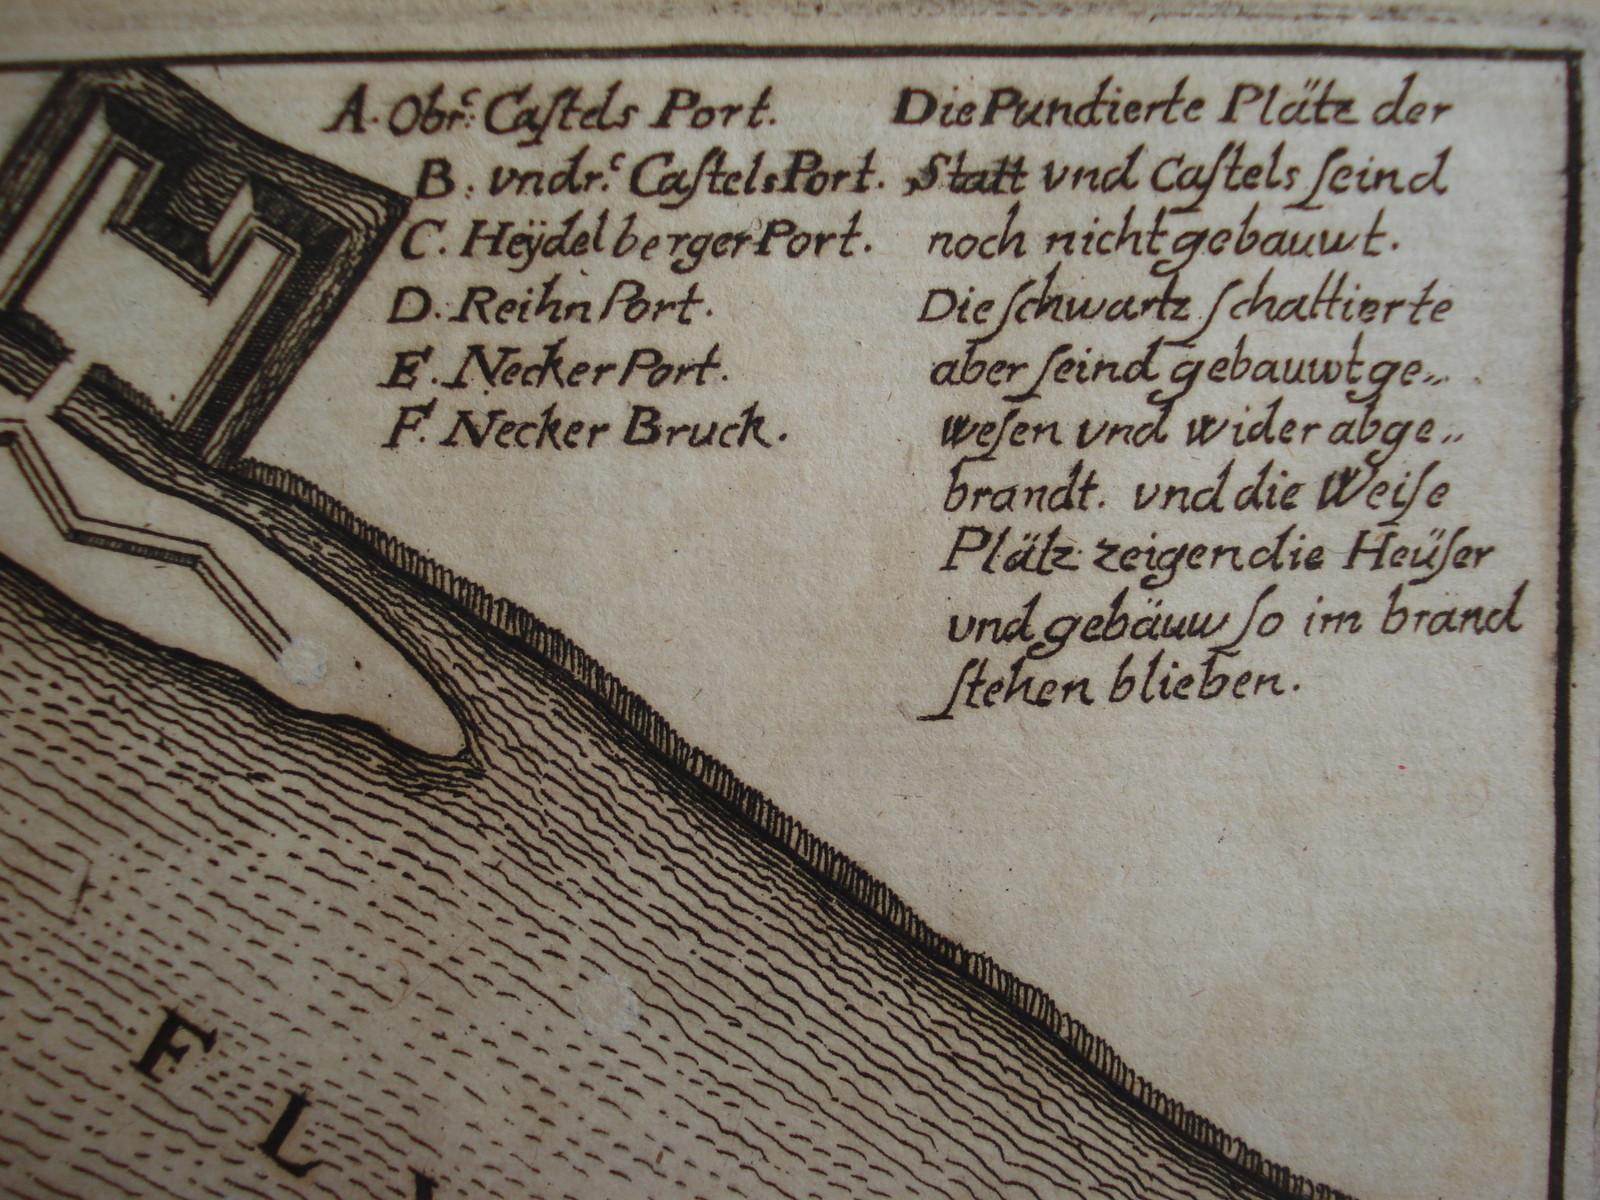 A. Obr.ᶜ Caſtels Port.
B. vndr.ᶜ Caſtels Port.
C. Heÿdelberger Port.
D. Reihn Port.
E. Necker Port.
F. Necker Bruck.
Die Pundierte Plätz der
Statt vnd Caſtels ſeind
noch nicht gebauwt.
Die ſchwartz ſchattierte
aber ſeind gebauwt ge„
weſen vnd wider abge„
brandt. vnd die Weiſe
Plätz zeigen die Heüſer
vnd gebäuw ſo im brand
ſtehen blieben.
F L